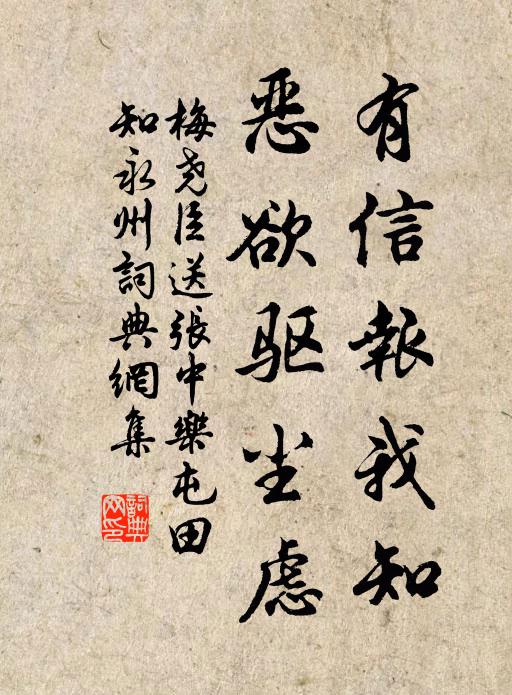 有信報我知
恶欲驱尘虑
梅尧臣送張中樂屯田
知永州詞典網集
詞典
网印